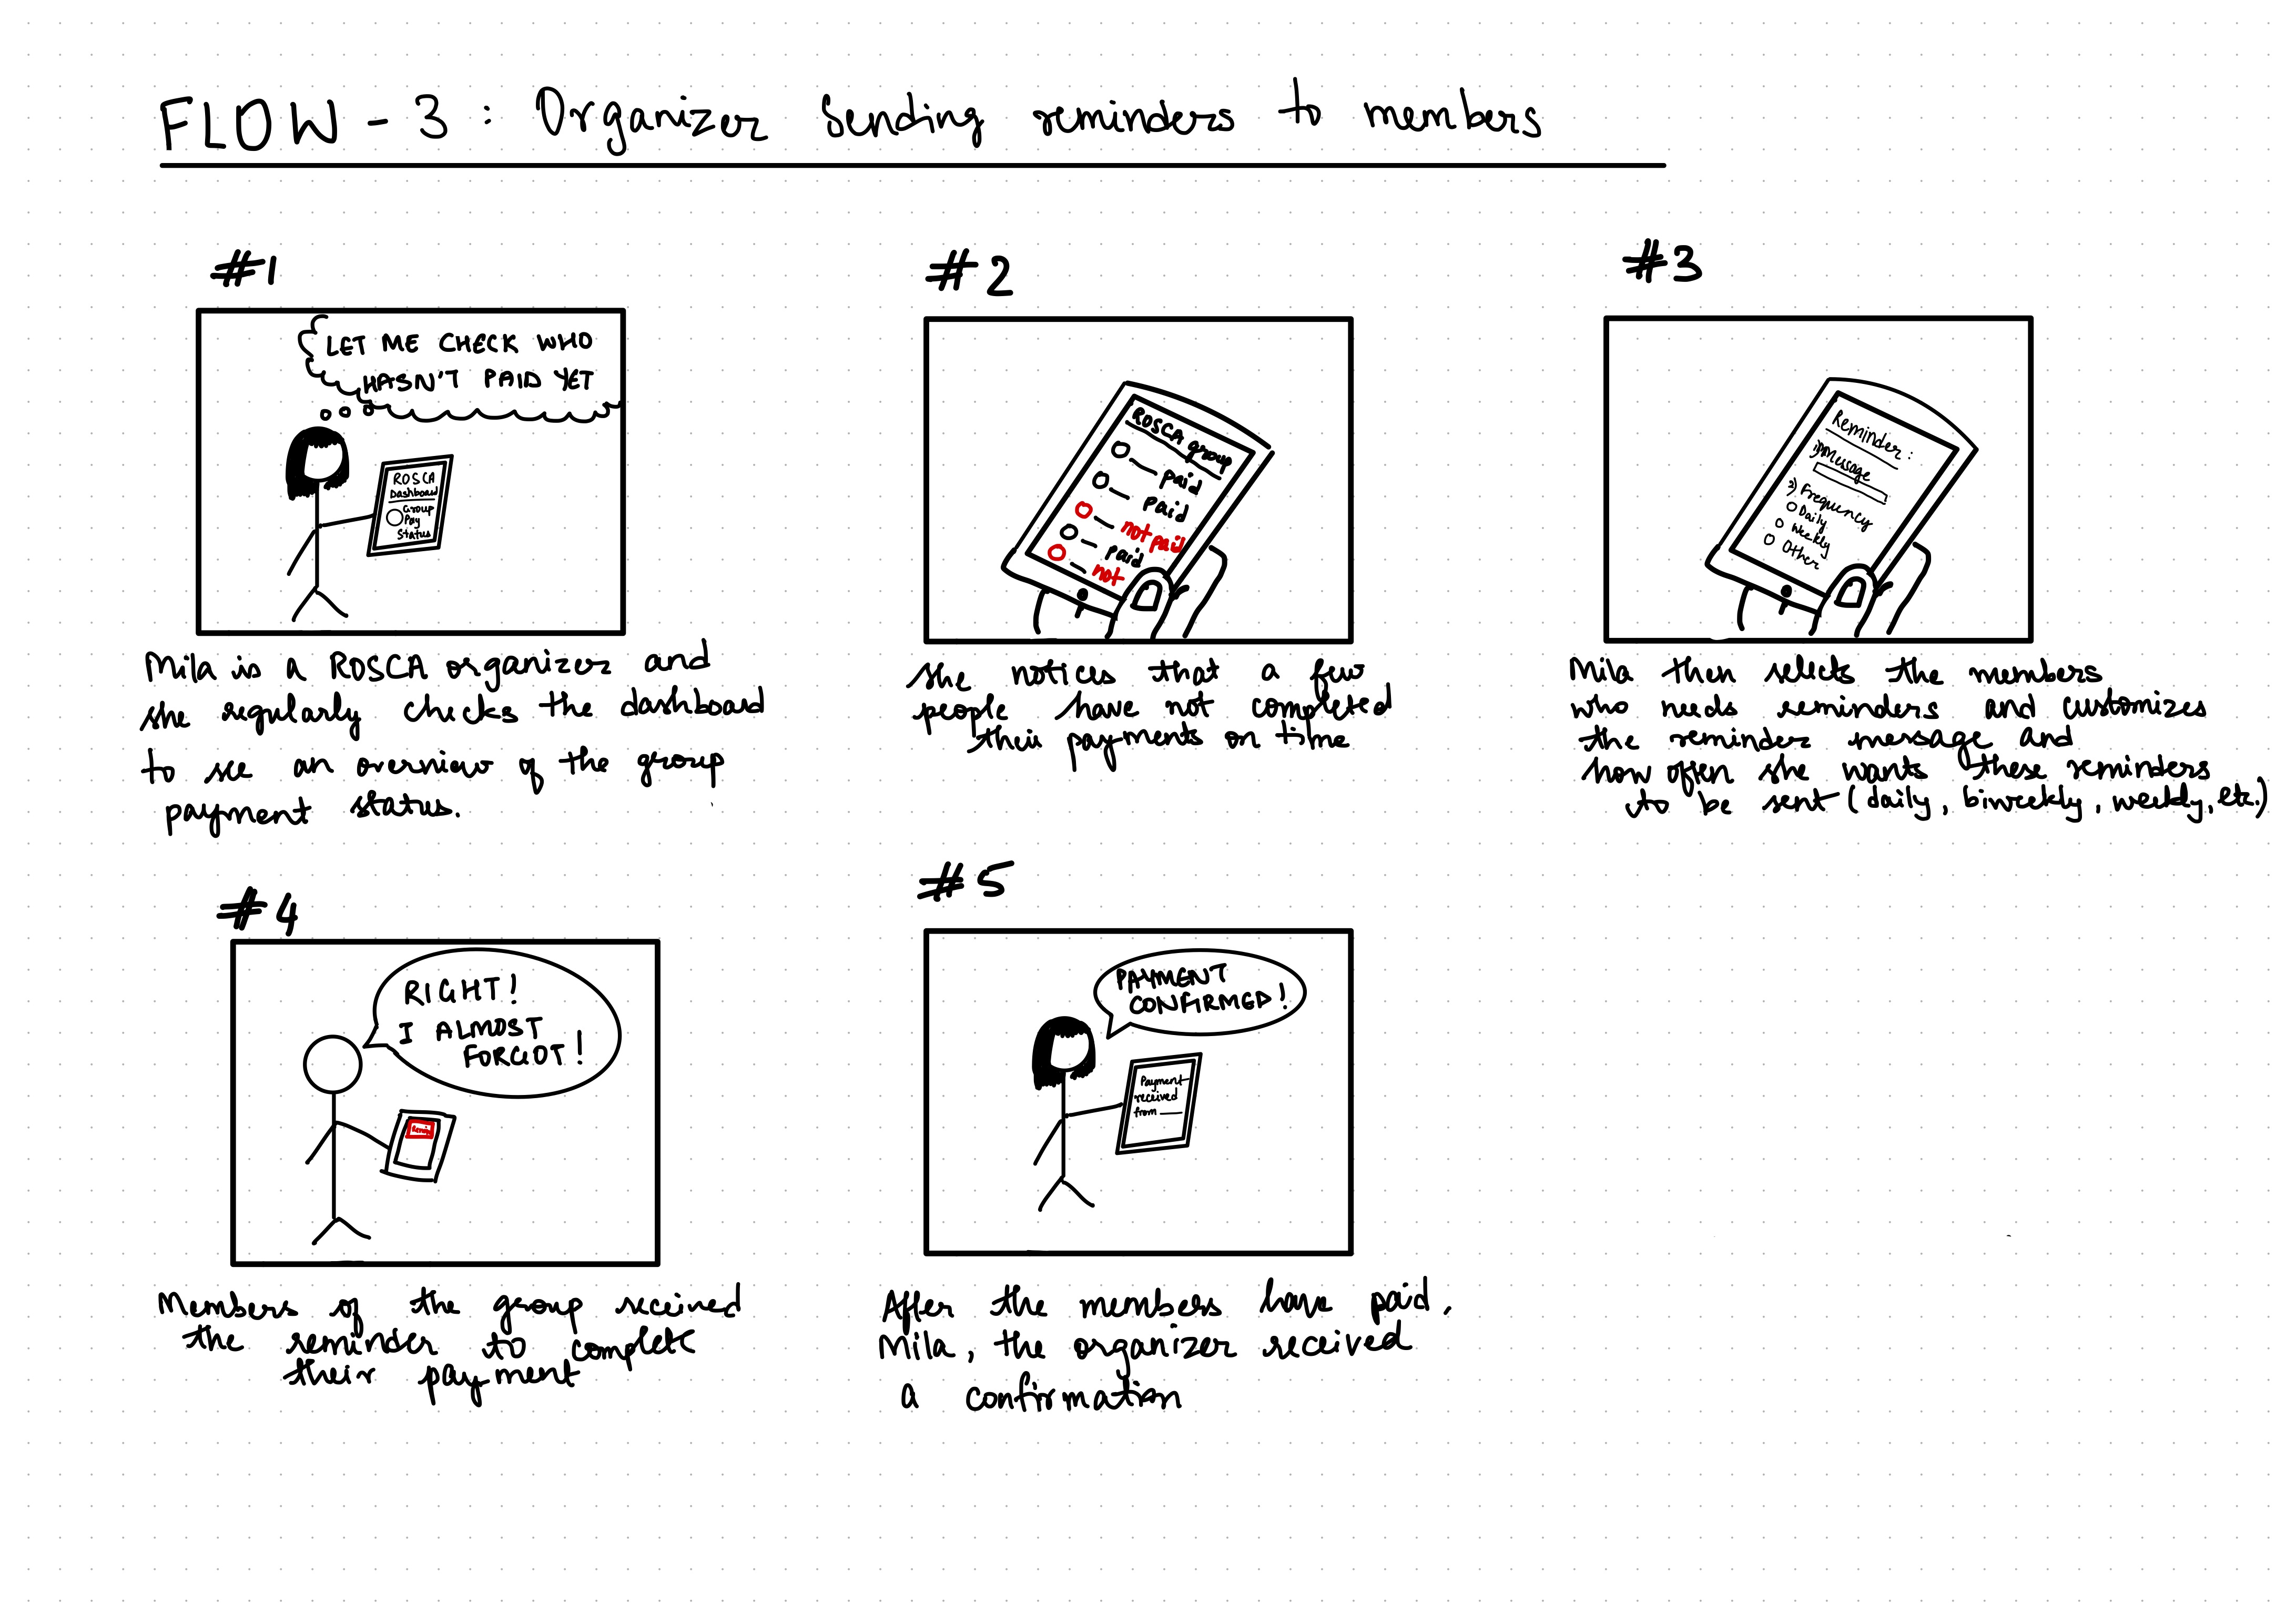 FLOW - 3 : Organizer Sending reminders to members
#1
LET ME CHECK WHO
HASN'T PAID YET
ROSCA
Dashboard
Group
Pay
Status
Mila is a ROSCA organizer and
she regularly checks the dashboard
to see an overview of the group
payment status.
#2
ROSCA group
paid
paid
not paid
paid
not
she notices that a few
people have not completed
their payments on time
#3
Reminder :
1) Message
2) Frequency
Daily
Weekly
Other
Mila then selects the members
who needs reminders and customizes
the reminder message and
how often she wants these reminders
to be sent (daily, biweekly, weekly, etc.)
#4
RIGHT!
I ALMOST
FORGOT!
Members of the group received
the reminder to complete
their payment
#5
PAYMENT
CONFIRMED!
Payment
received
from
After the members have paid,
Mila, the organizer received
a confirmation